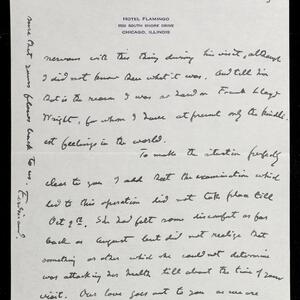 HOTEL FLAMINGO
5520 SOUTH SHORE DRIVE
CHICAGO, ILLINOIS
nervous with this thing during his visit, although
I did not know then what it was. And tell him
that is the reason I was so hard on Frank Lloyd
Wright, for whom I have at present only the kindli-
est feelings in the world.
To make the situation perfectly
clear to you I add that the examination which
led to this operation did not take place till
Oct. 9th. She had felt some discomfort as far
back as August but did not realize that
something or other which she could not determine
was attacking her health till about the time of your
visit. Our love goes out to you as we are
sure that yours flows back to us.